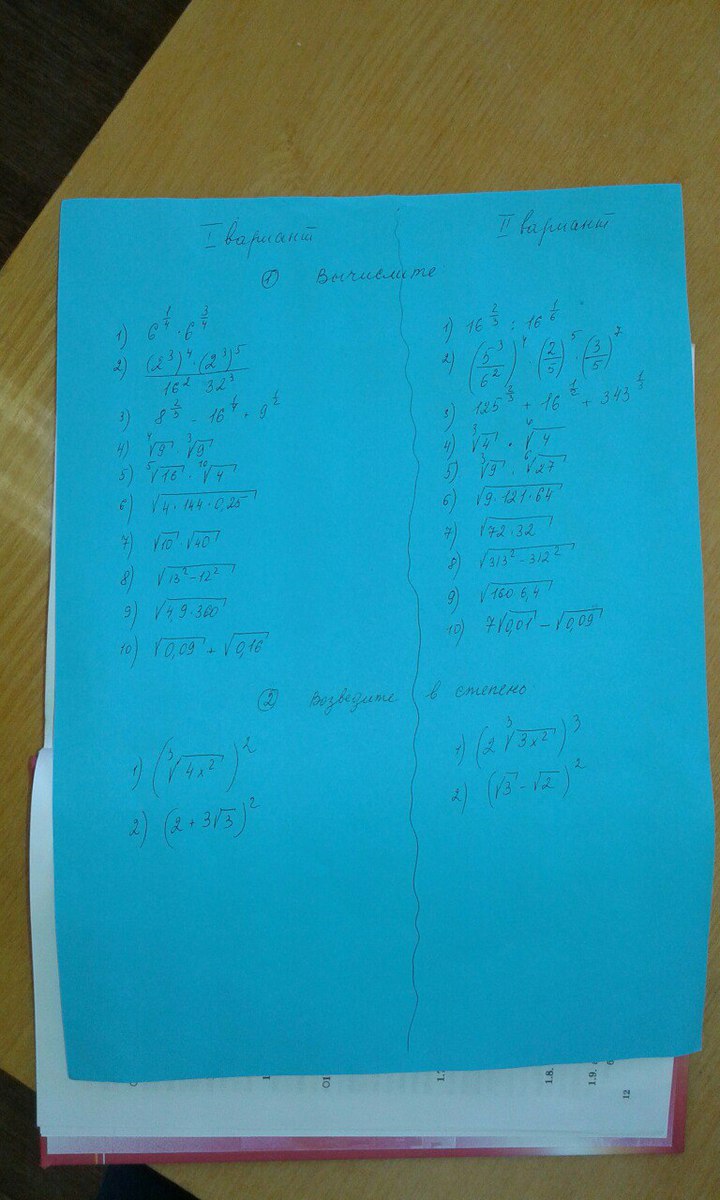 I вариант
II вариант
① Вычислите
1) 6^{1/4} · 6^{3/4}
2) (2^3)^4 · (2^3)^5 / 16^2 · 32^3
3) 8^{2/3} - 16^{1/4} + 9^{1/2}
4) ∜9 · ∛9
5) ⁵√16 · ¹⁰√4
6) √(4 · 144 · 0,25)
7) √10 · √40
8) √(13² - 12²)
9) √(4,9 · 360)
10) √0,09 + √0,16
1) 16^{2/3} : 16^{1/6}
2) (5^3/6^2)^4 · (2/5)^5 · (3/5)^7
3) 125^{2/3} + 16^{1/2} + 343^{1/3}
4) ∛4 ·
5) ∛9 · ⁶√27
6) √(9 · 121 · 64)
7) √(72 · 32)
8) √(313² - 312²)
9) √(160 · 6,4)
10) 7√0,01 - √0,09
② Возведите в степень
1) (∛(4x²))²
2) (2 + 3√3)²
1) (2 ∛(3x²))³
2) (√3 - √2)²
1.8.
1.9.
12